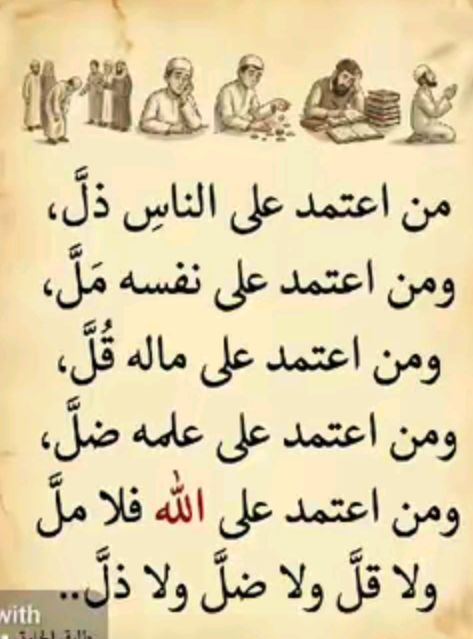 من اعتمد على الناسِ ذلَّ،
ومن اعتمد على نفسه مَلَّ،
ومن اعتمد على ماله قُلَّ،
ومن اعتمد على علمه ضلَّ،
ومن اعتمد على الله فلا ملَّ
ولا قلَّ ولا ضلَّ ولا ذلَّ..
with